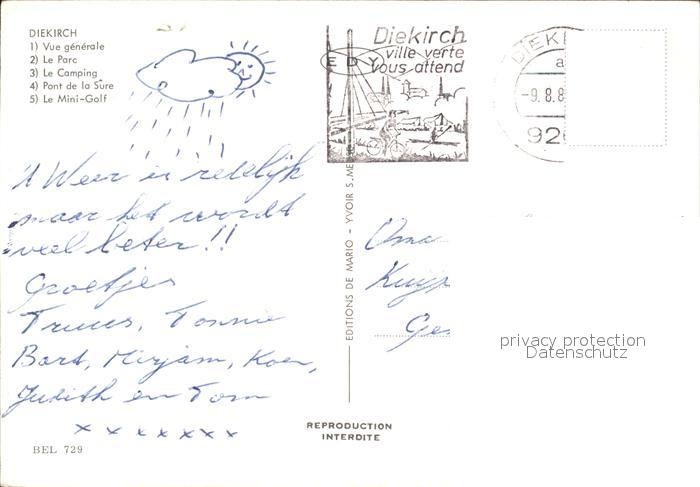 DIEKIRCH
1) Vue générale
2) Le Parc
3) Le Camping
4) Pont de la Sûre
5) Le Mini-Golf
Diekirch
ville verte
vous attend
EDY
DIEKI
a
-9.8.8
92
't Weer is redelijk
maar het wordt
veel beter!!
Groetjes
Truus, Tonnie
Bart, Mirjam, Koen,
Judith en Tom
x x x x x x x
BEL 729
EDITIONS DE MARIO - YVOIR S. ME
REPRODUCTION
INTERDITE
Oma
Kuyp
Ge
privacy protection
Datenschutz